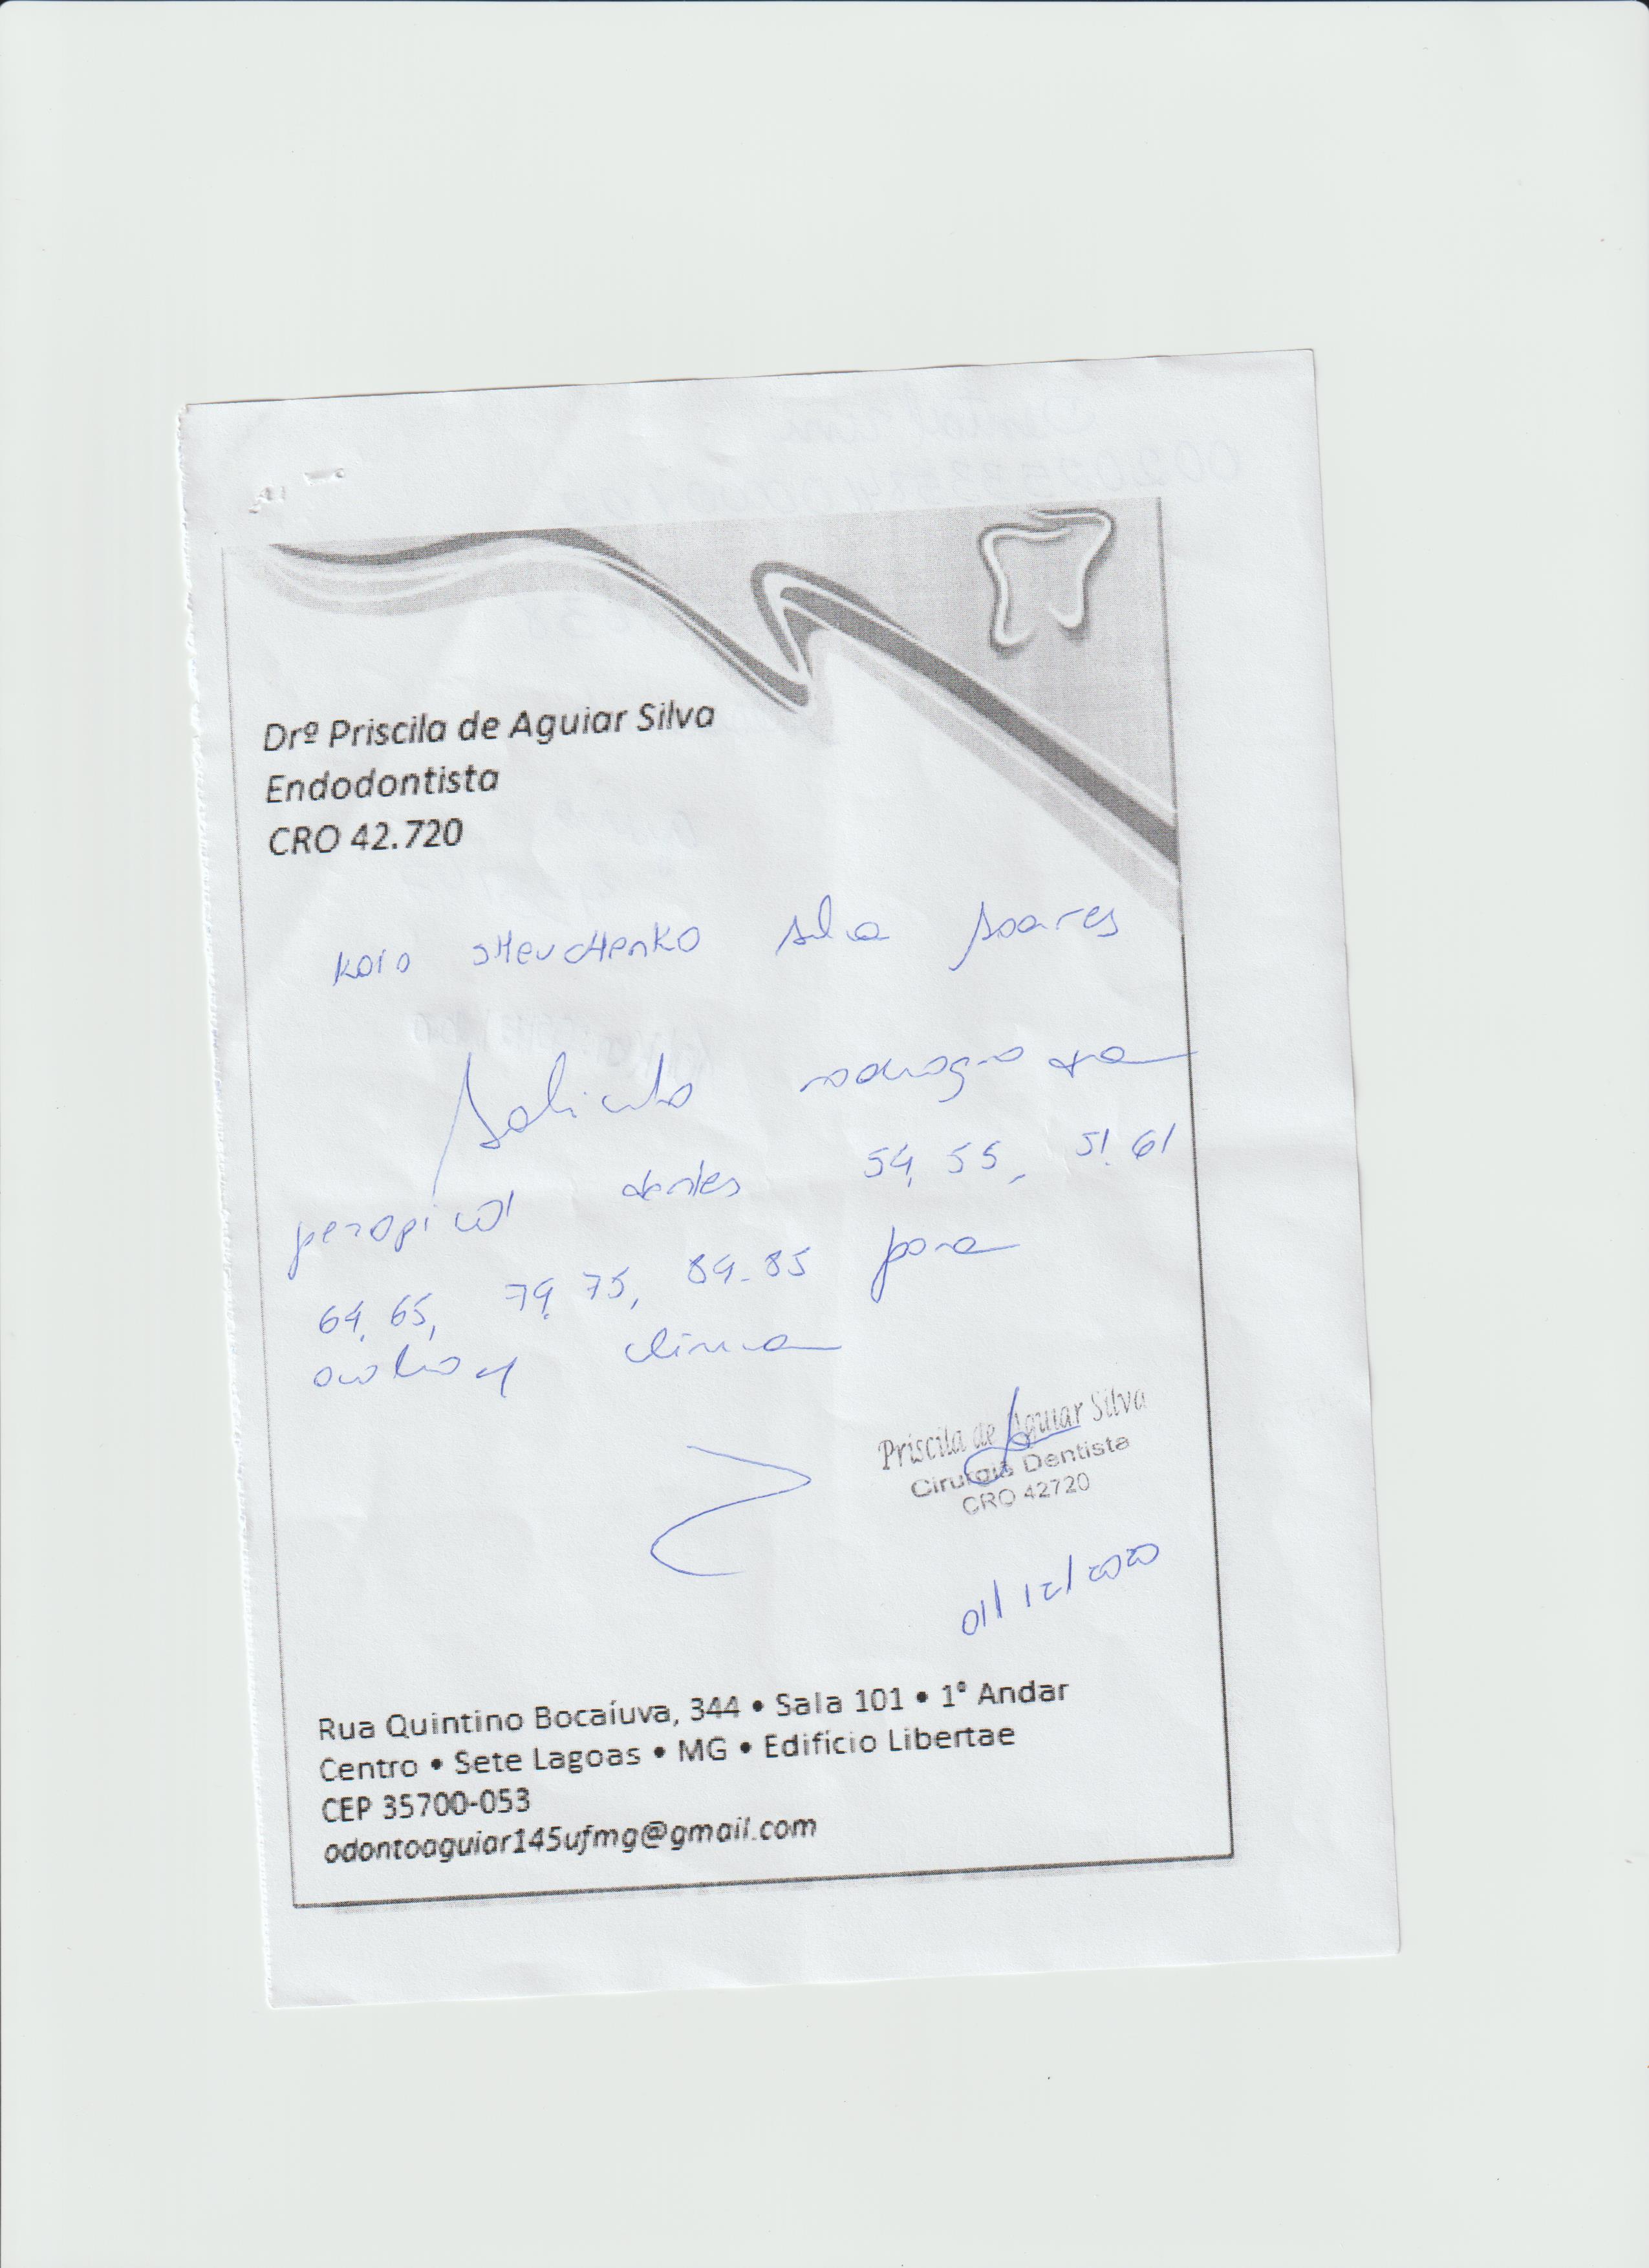 Drº Priscila de Aguiar Silva
Endodontista
CRO 42.720
Kaio SHevcHenko Silva Soares
Solicito radiografia
periapical dentes 54, 55, 51. 61
64, 65, 74, 75, 84-85 para
avaliação clínica
Priscila de Aguiar Silva
Cirurgiã Dentista
CRO 42720
01/12/2020
Rua Quintino Bocaíuva, 344 • Sala 101 • 1° Andar
Centro • Sete Lagoas • MG • Edifício Libertae
CEP 35700-053
odontoaguiar145ufmg@gmail.com